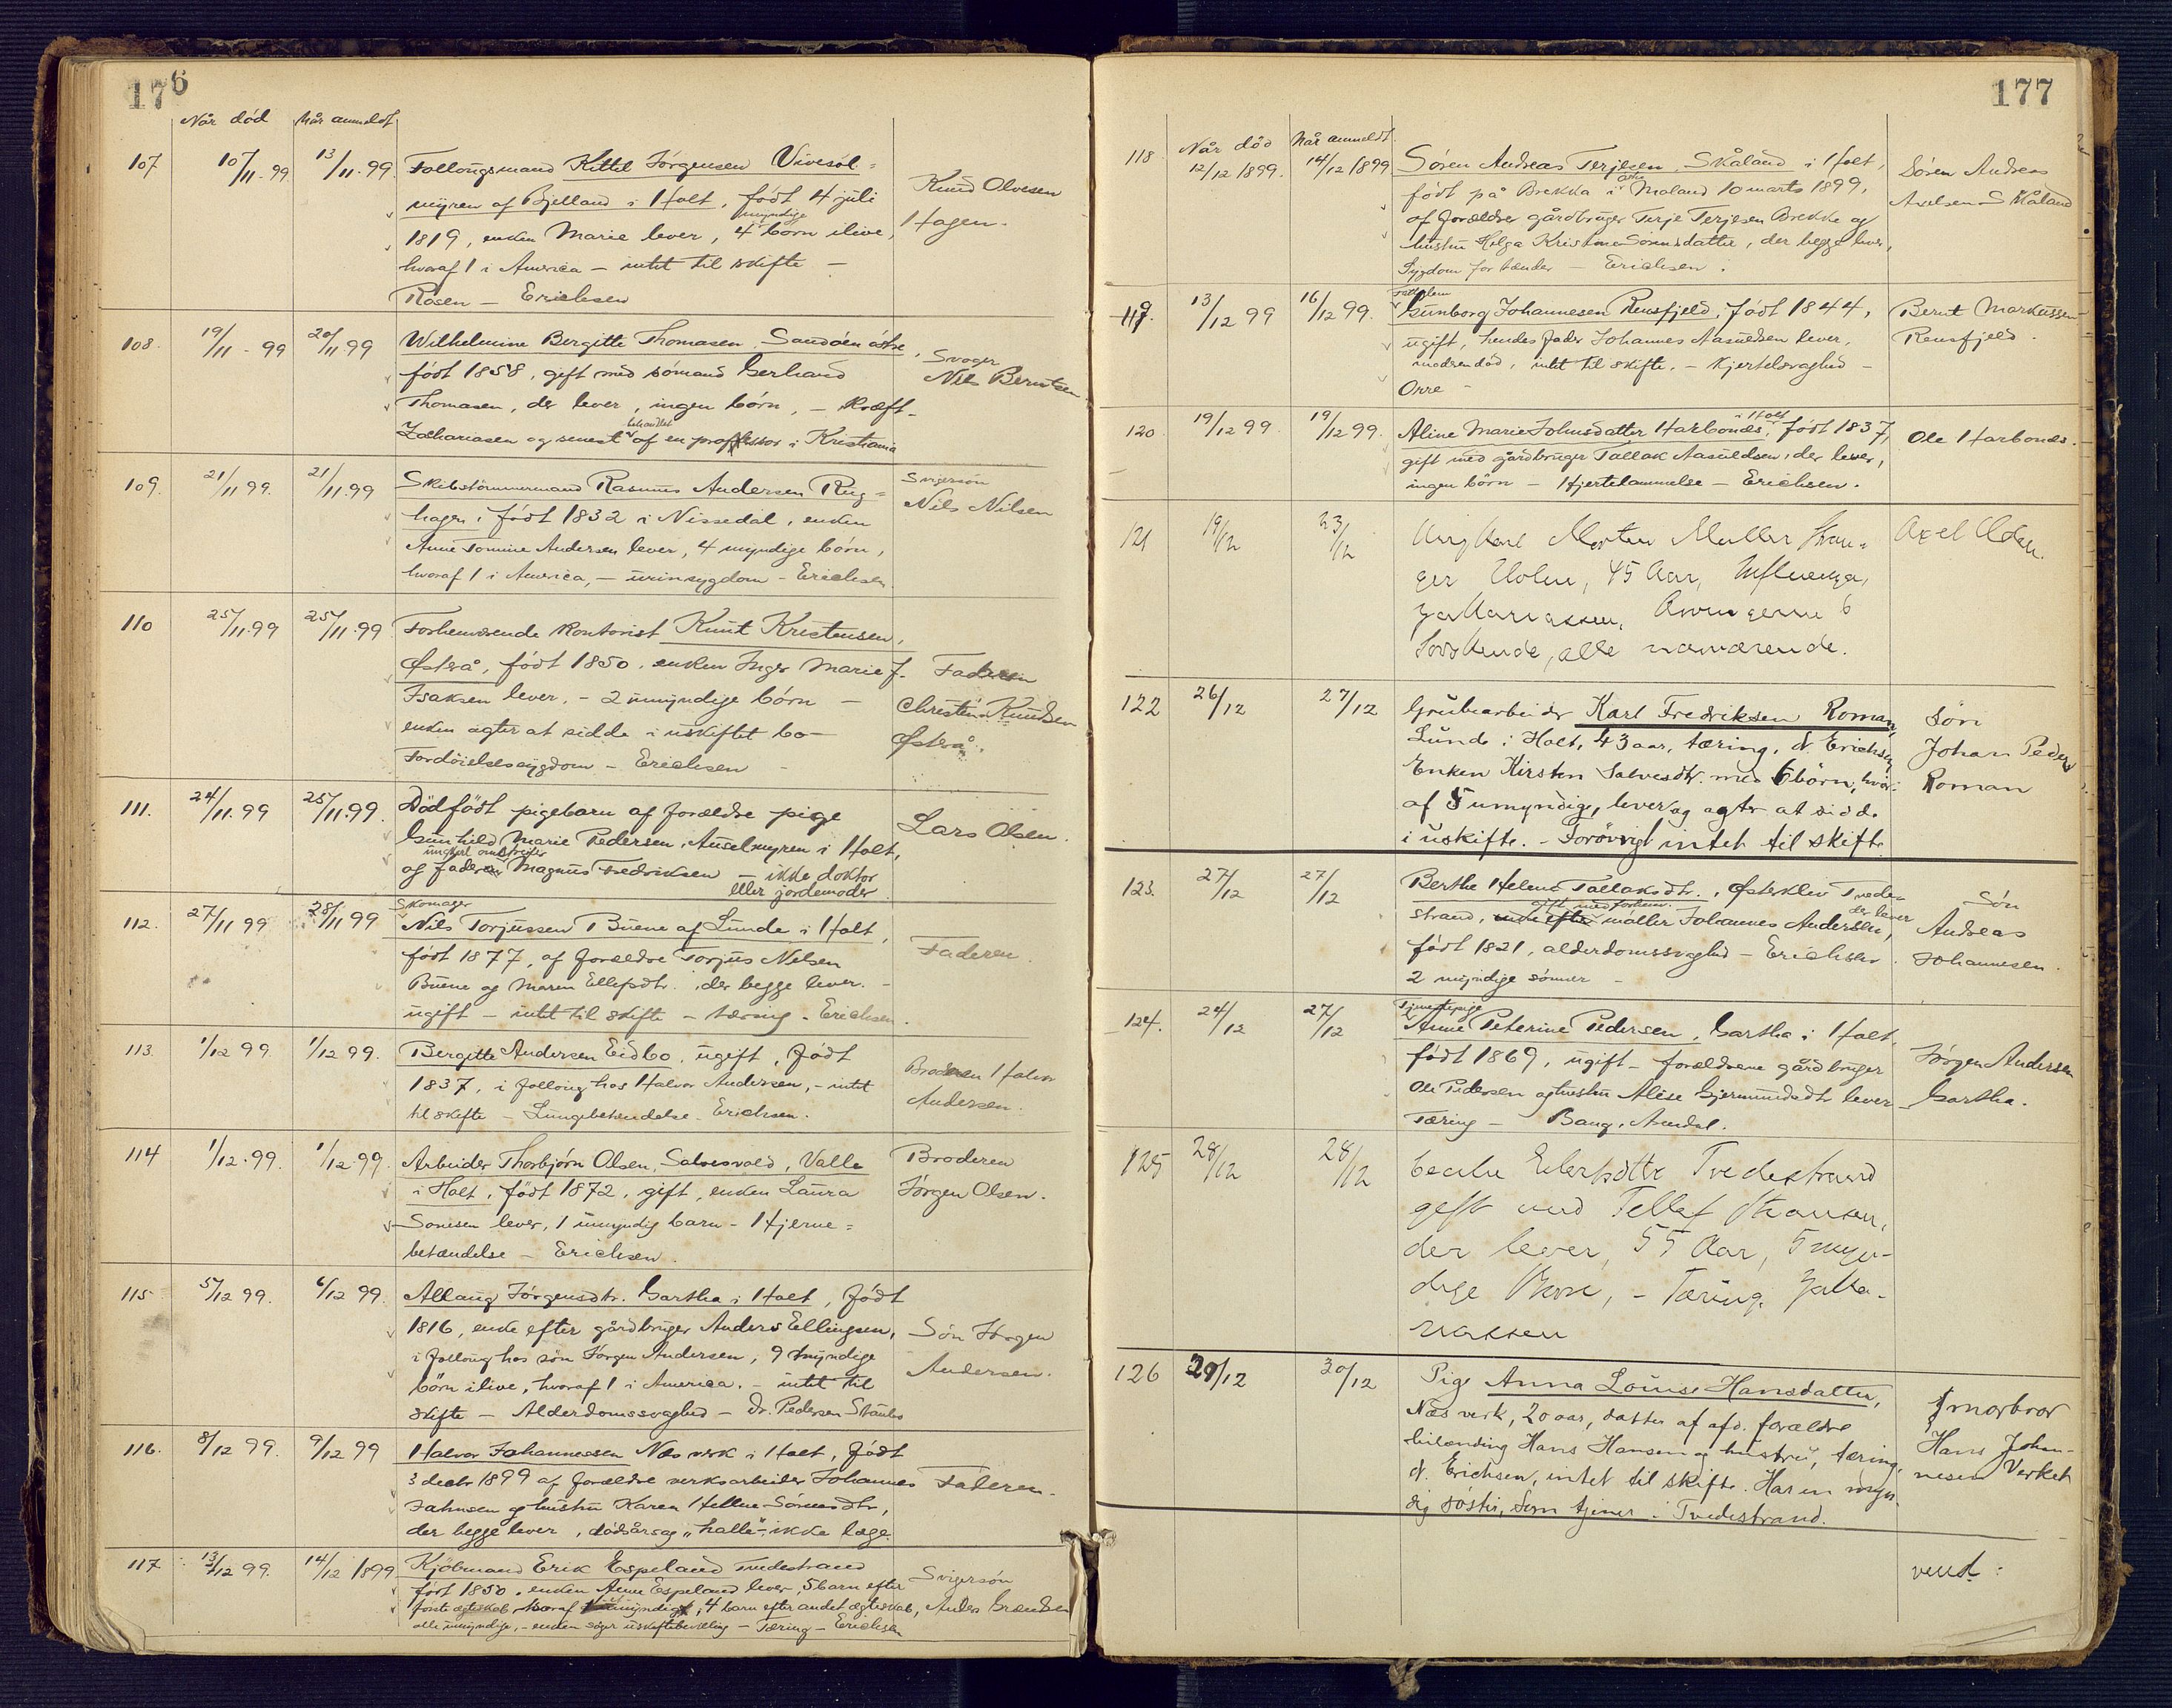 176
Når død
Når anmeldt
107
10/11-99
13/11-99.
Follougsmand Kittil Jørgensen Vivesøl=
myren af Bjelland i Holt, født 4 juli
myndige
1819, enken Marie lever, 4 børn ilive,
hvoraf 1 i America – intet til skifte –
Rosen – Erichsen
Knud Olvesen
Hagen.
108.
19/11-99
20/11 99
Wilhelmine Bergitte Thomasen, Sandøen østre,
født 1858, gift med sømand Gerhard
Thomasen, der lever, ingen børn, – Kræft –
behandlet
Zachariasen og senest af en professor i Kristiania
Svoger
Nils Berntsen
109.
21/11 99.
21/11.99
Skibstømmermand Rasmus Andersen Rug=
hagen, født 1832 i Nissedal, enken
Anne Tomine Andersen lever, 4 myndige børn,
hvoraf 1 i America, – urinsygdom – Erichsen.
Svigersøn
Nils Nilsen
110
25/11.99
25/11.99
Forhenværende Kontorist Knut Kristensen,
Østerå, født 1850, enken Inger Marie f.
Isaksen lever. – 2 umyndige børn –
enken agter at sidde i uskiftet bo –
Fordøielsessygdom – Erichsen –
Faderen
Christen Knudsen
Østerå.
111.
24/11.99
25/11.99.
Dødfødt pigebarn af forældre pige
Gunhild Marie Pedersen, Auselmyren i Holt,
ungkarl
og faderen Magnus Fredriksen – ikke doktor
eller jordemoder
Lars Olsen.
112.
27/11 99
28/11 99
Skomager
Nils Torjussen Buene af Lunde i Holt,
født 1877, af forældre Torjus Nilsen
Buene og Maren Ellefsdtr., der begge lever. –
ugift – intet til skifte – tæring – Erichsen.
Faderen.
113.
1/12 99.
1/12 99.
Bergitte Andersen Eidbo, ugift, født
1837, i folloug hos Halvor Andersen, – intet
til skifte – Lungebetændelse. Erichsen.
Broderen Halvor
Andersen.
114
1/12.99.
1/12.99.
Arbeider Thorbjørn Olsen, Salvesvold, Valle
i Holt, født 1872, gift, enken Laura
Sonesen lever, 1 umyndig barn – Hjerne=
betændelse – Erichsen.
Broderen
Jørgen Olsen.
115
5/12 99.
6/12 99.
Allaug Jørgensdtr. Gartha i Holt, født
1816, enke efter gårdbruger Anders Ellingsen,
i folloug hos søn Jørgen Andersen, 9 myndige
børn ilive, hvoraf 1 i America. – intet til
skifte – Alderdomssvaghed – Dr. Pedersen
Søn Jørgen
Andersen.
116.
8/12 99.
9/12 99
Halvor Johannessen Næs verk i Holt, født
3 decbr 1899 af forældre verksarbeider Johannes
og hustru Karen Helene Sørensdtr.,
der begge lever, dødsårsag ikke læge.
Faderen.
117
13/12 99.
14/12 1899
Kjøbmand Erik Espeland Tvedestrand
født 1850, enken Anne Espeland lever, 5 barn efter
første ægteskab, hvoraf, 4 barn efter andet ægteskab,
alle umyndige, – enken søger uskiftebevilling – Tæring – Erichsen
Svigersøn
Anders
177
Når død
Når anmeldt.
118
12/12 1899.
14/12 1899
Søren Andreas Terjesen, Skåland i Holt,
født på Brekka i Østre Moland 10 marts 1899,
af forældre gårdbruger Terje Terjesen Brekke og
hustru Helga Kristine Sørensdatter, der begge lever,
Sygdom for tænder – Erichsen.
Søren Andreas
Axelsen Skåland
119.
13/12 99
16/12 99.
Gunborg Johannesen Rensfjeld, født 1844,
ugift, hendes fader Johannes Aanudsen lever,
moderen død, intet til skifte. – Kjertelsvaghed –
Orre –
Bernt Markussen
Rensfjeld.
120
19/12 99
19/12 99.
i Holt
Aline Marie Johnsdatter Harbonds, født 1837,
gift med gårdbruger Tallak Aanuldsen, der lever,
ingen børn – Hjertelammelse – Erichsen.
Ole Harbonds.
121
19/12
23/12
Ungkarl Morten Møller
Holm, 45 Aar, Influenza,
Zakkariassen, Arvingerne 6
Sødskende, alle nærværende.
Axel
122
26/12
27/12
Grubearbeider Karl Fredriksen Roman,
Lunde i Holt, 43 aar, tæring, d. Erichsen
Enken Kirsten Salvesdtr. med 6 børn, hvor-
af 5 umyndige, lever og agter at sidde
i uskifte. – Forøvrigt intet til skifte.
Søn
Johan Peder
Roman
123.
27/12
27/12
Berthe Helene Tallaksdtr., Østerklev Tvede=
gift med forhenv.
der lever
strand, enke efter møller Johannes Andersen,
født 1821, alderdomssvaghed – Erichsen.
2 myndige sønner –
Søn
Andreas
Johannesen.
124.
24/12
27/12
Tjenestepige
Anne Peterine Pedersen, Gartha i Holt,
født 1869, ugift – forældrene gårdbruger
Ole Pedersen og hustru Alise Gjermundsdtr lever
Tæring – Bang, Arendal.
Jørgen Andersen
Gartha.
125
28/12
28/12
Cecilie Eilerpdttr Tvedestrand
gift med Tellef Hansen,
der lever, 55 Aar, 5 myn-
dige Børn, – Tæring, Zakka-
riassen
126
29/12
30/12
Pige Anna Louise Hansdatter,
Næs verk, 20 aar, datter af afd. forældre
Hans Hansen og hustru, tæring,
d. Erichsen, intet til skifte. Har en myn-
dig søster, som tjener i Tvedestrand.
morbror
Hans Johan-
nesen Verket
vend: